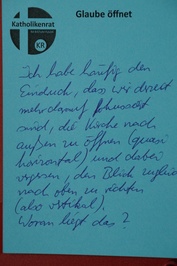 Katholikenrat
KR
Glaube öffnet
Ich habe häufig den
Eindruck, dass wir derzeit
mehr darauf fokussiert
sind, die Kirche nach
außen zu öffnen (quasi
horizontal) und dabei
vergessen, den Blick zugleich
nach oben zu richten
(also vertikal).
Woran liegt das?